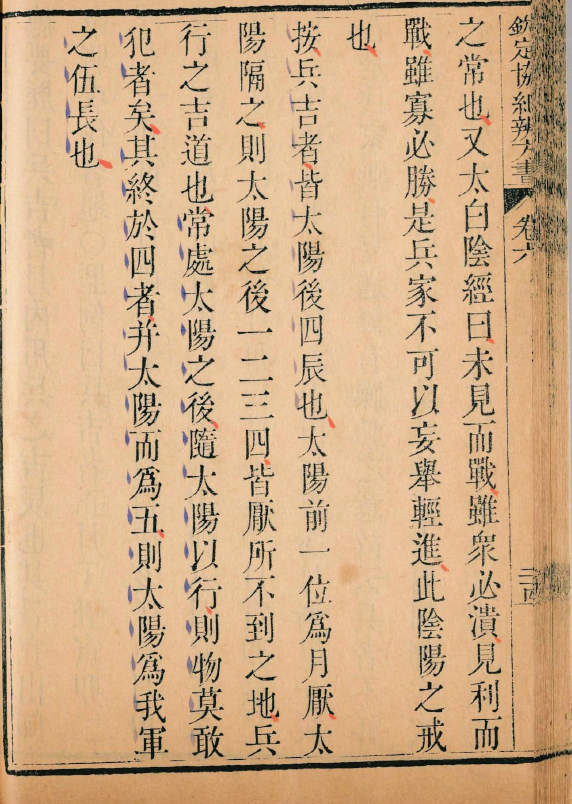 欽定協紀辨方書 卷六
之常也又太白陰經曰未見而戰雖衆必潰見利而
戰雖寡必勝是兵家不可以妄舉輕進此陰陽之戒
也
按兵吉者皆太陽後四辰也太陽前一位為月厭太
陽隔之則太陽之後一二三四皆厭所不到之地兵
行之吉道也常處太陽之後隨太陽以行則物莫敢
犯者矣其終於四者并太陽而為五則太陽為我軍
之伍長也